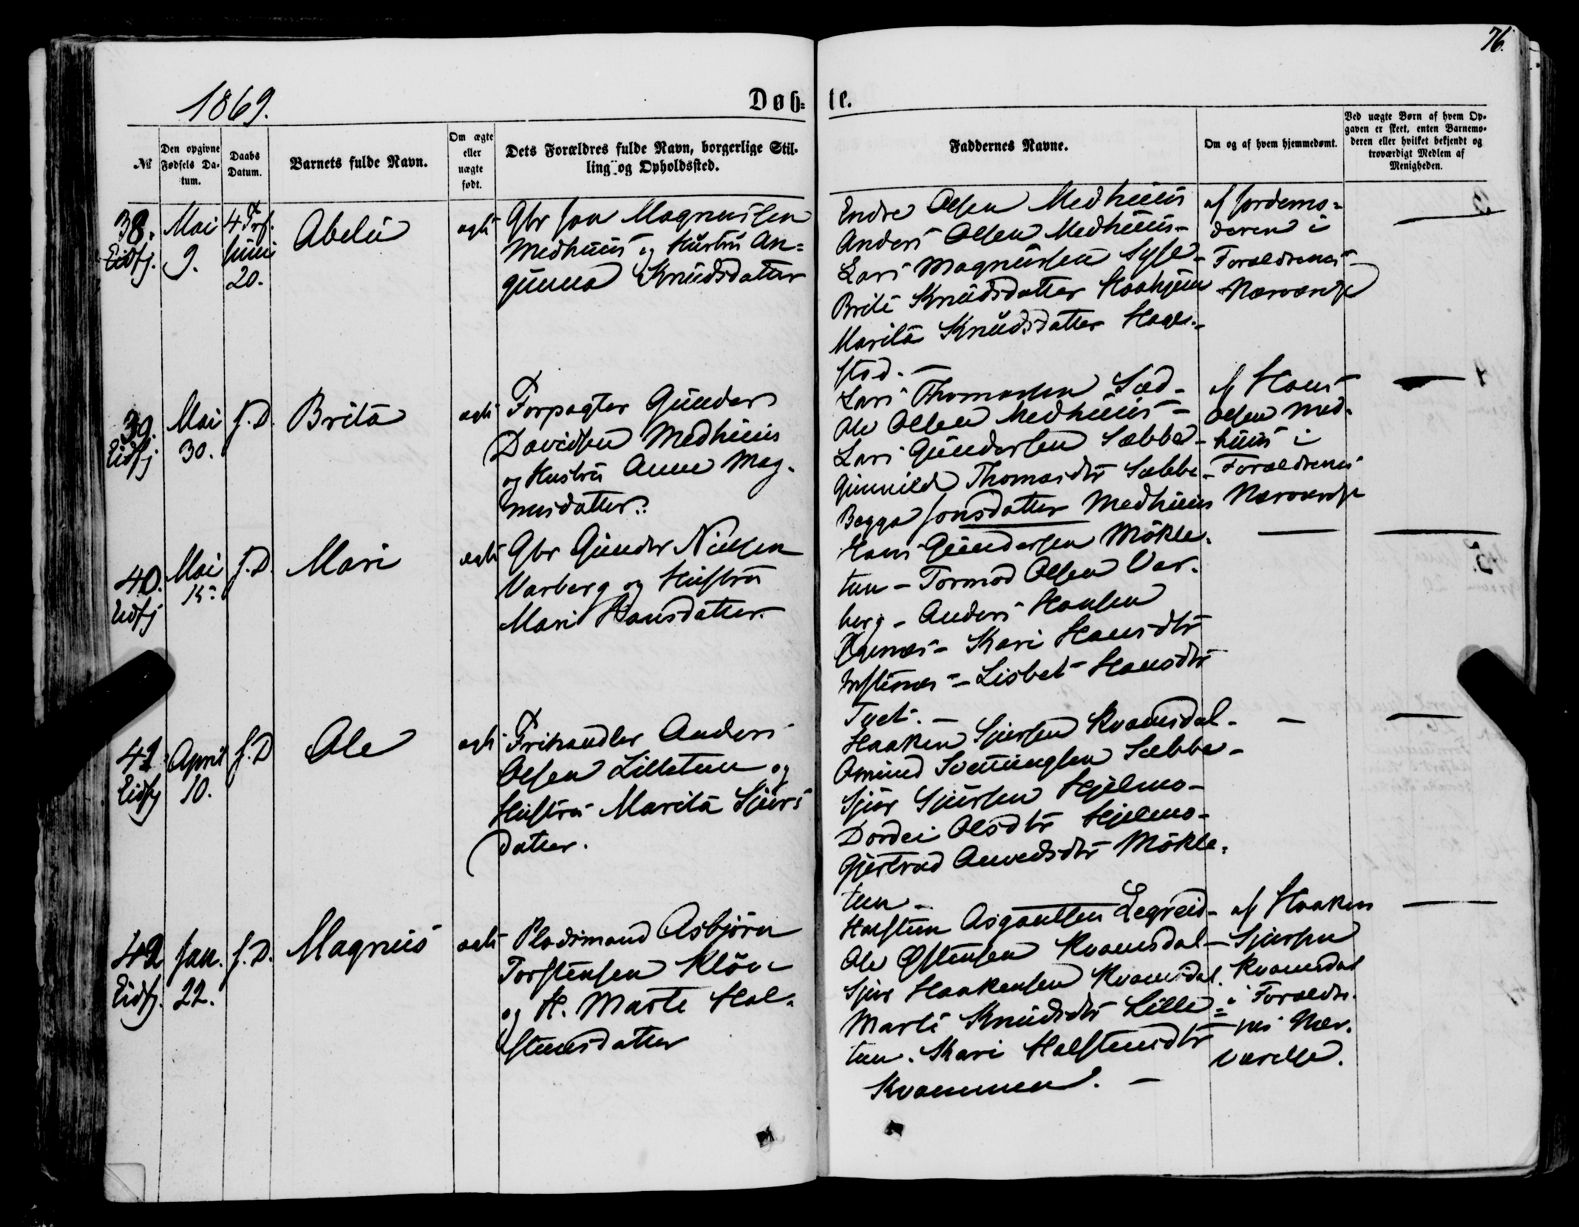 76.
1869.
Døb=
te.
№
Den opgivne Fødsels Datum.
Daabs Datum.
Barnets fulde Navn.
Om ægte eller uægte født.
Dets Forældres fulde Navn, borgerlige Stilling og Opholdssted.
Faddernes Navne.
Om og af hvem hjemmedømt.
Ved uægte Børn af hvem Opgaven er skeet, enten Barnemoderen eller hvilket bekjendt og troværdigt Medlem af Menigheden.
38.
Eidfj.
Mai
9.
Juni
20.
Abelu
ægte
Gbr Jon Magnussen
Medhuus og Hustru An=
gunna Knudsdatter
Endre Olsen Medhuus
Anders Olsen Medhuus-
Lars Magnussen Syse-
Brite Knudsdatter
Marita Knudsdatter
stad. -
af Jordemo=
deren i
Forældrenes
Nærværelse
39.
Eidfj
Mai
30.
s. D.
Brita
ægte
Forpagter Gunder
Davidsen Medhuus
og Hustru Anne Mag-
nusdatter.
Lars Thomassen Sæd-
Ole Olsen Medhuus-
Lars Gundersen Sæbbe-
Gunnild Thomasdtr Sæbbe-
Bagga Jonsdatter Medhuus
af Hans
Olsen Med-
huus i
Forældrenes
Nærværelse
40.
Eidfj
Mai
15.
s. D.
Mari
ægte
Gbr Gunder Nielsen
Varberg og Hustru
Mari Hansdatter.
Hans Gundersen Møkle-
tun - Tormod Olsen Var-
berg - Anders Hansen
- Kari Hansdtr
- Lisbet Hansdtr
Tveit. -
41
Eidfj
April
10.
s. D
Ole
ægte
Frihandler Anders
Olsen Lilletun og
Hustru Marita Sjurs
datter.
Haaken Sjursen Kvamsdal-
Amund Svenningsen Sæbbe-
Sjur Sjursen Hjelmo-
Dordei Olsdtr Hjelmo-
Gjertrud Amundsdtr Møkle-
tun -
42
Eidfj.
Jan.
22.
s. D.
Magnus
ægte
Pladsmand Asbjørn
Torstensen Kløv-
og H. Marte Hal-
stensdatter
Halsten Asgautsen Legreid-
Ole Østensen Kvamsdal-
Sjur Haakensen Kvamsdal.
Marte Knudsdtr Lille=
tun. Kari Halstensdtr
Kvammen. -
af Haaken
Sjursen
Kvamsdal
i Foræld-
nes Nær-
værelse.